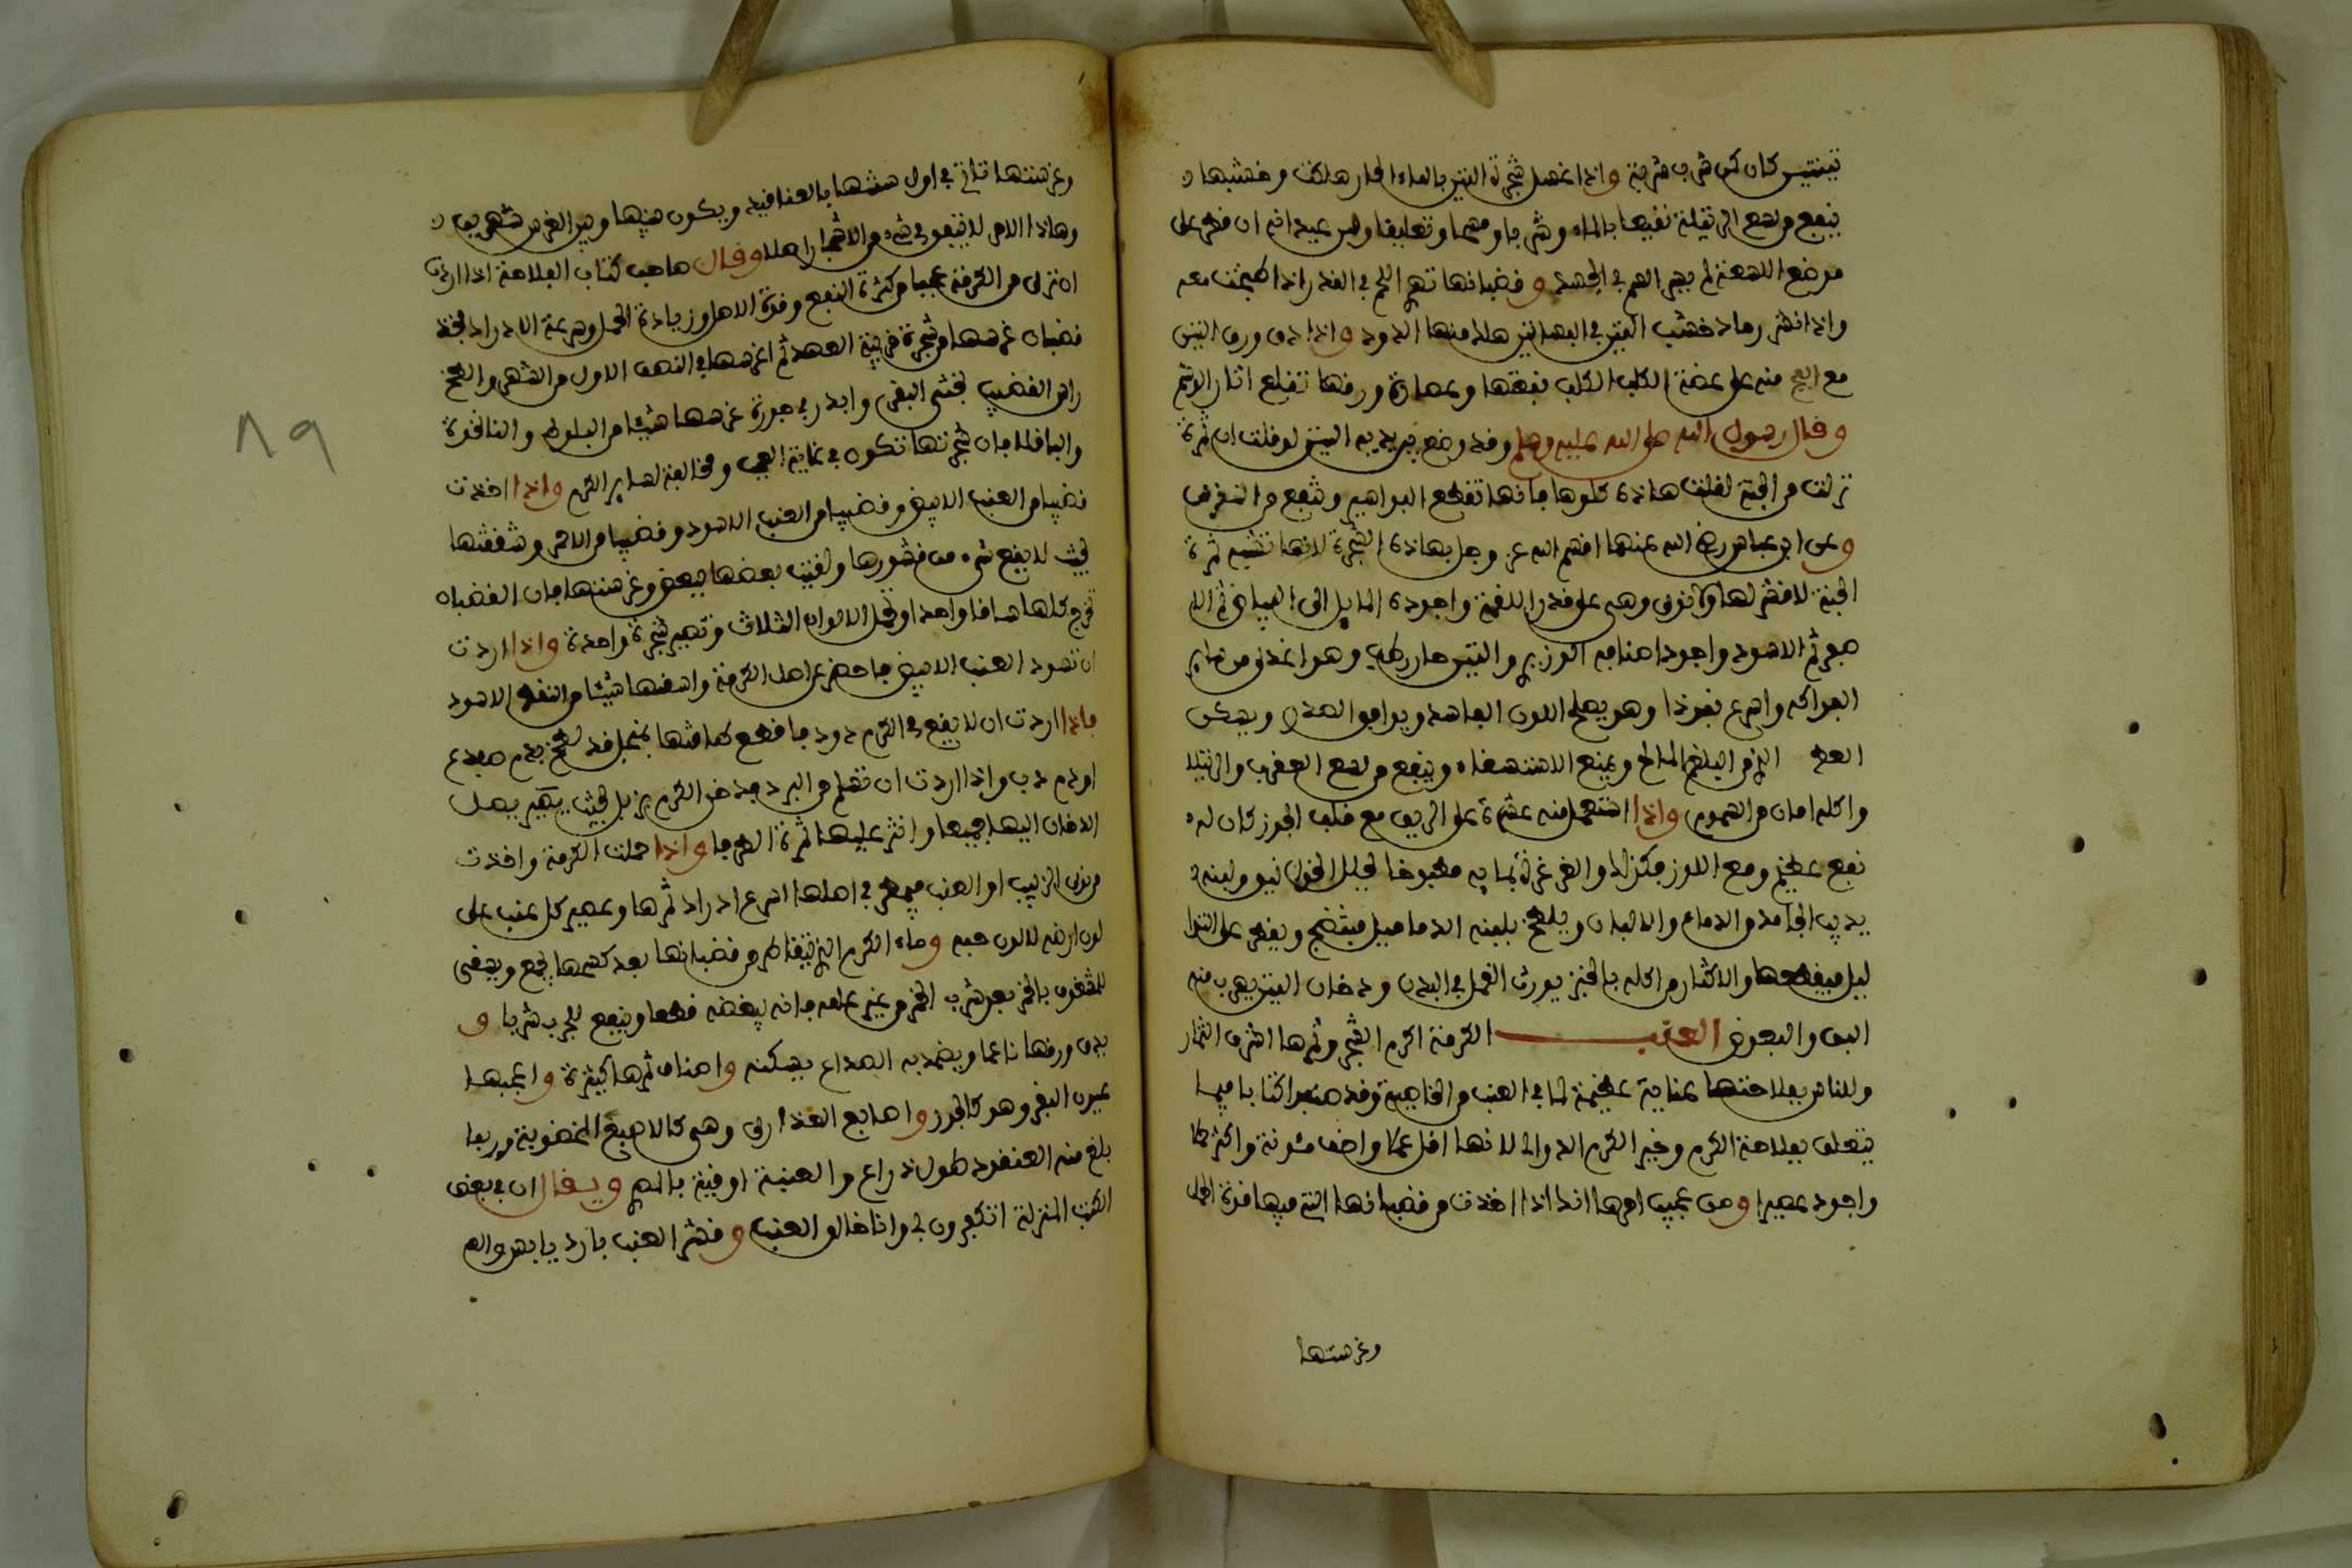 تينتيس كان كمن شرب شربة واذا غسل شجرة التين بالماء الحار هلكت وخشبها
ينفع من لسع الرتيلة نقيعها بالماء وشربا وضمادا وتعليقا ومن عجيبه انه ان قطر على
موضع اللسعة لم يجر السم في الجسد وقضبانها تهرئ اللحم في القدر اذا طبخت معه
واذا نثر رماد خشب التين في البساتين هلك منها الدود واذا دق ورق التين
مع الفج منه على عضة الكلب الكلب نفعها وعصارة ورقها تقلع اثار الوشم
وقال رسول الله صلى الله عليه وسلم وقد وضع بين يديه التين لو قلت ان ثمرة
نزلت من الجنة لقلت هاذه كلوها فانها تقطع البواسير وتنفع من النقرس
وعن ابن عباس رضي الله عنهما اقسم الله عز وجل بهاذه الشجرة لانها تشبه ثمرة
الجنة لا قشر لها ولا نوى وهي على قدر اللقمة واجوده المايل الى البياض ثم الا
صفر ثم الاسود واجود اصنافه الوزيري والتين حار رطب وهو اغذى من ساير
الفواكه واسرع نفوذا وهو يصلح اللون الفاسد ويوافق الصدر ويسكن
العطش الذي من البلغم المالح ويمنع الاستسقاء وينفع من لسع العقرب والرتيلا
واكله امان من السموم واذا استعمل منه عشرة على الريق مع قلب الجوز كان له
نفع عظيم ومع اللوز فكذلك والغرغرة بمايه مطبوخا تحلل الخوانيق ولبنه
يذيب الجامد من الدماء والالبان ويلطخ بلبنه الدماميل فتنضج ويقطر على الثوا
ليل فيقطعها والاكثار من اكله بالخبز يورث القمل في البدن ودخان التين يهرب منه
البق والبعوض العنب الكرمة اكرم الشجر وثمرها اشرف الثمار
وللناس بفلاحتها عناية عظيمة لما في العنب من الخاصية وقد صنفوا كتابا فيما
يتعلق بفلاحة الكرم وخير الكرم الدوالي لانها اقل عملا واخف مئونة واكثر حملا
واجود عصيرا ومن عجيب امرها انك اذا اخذت من قضبانها التي فيها قوة الحمل
وغرستها
وغرستها تاتي في اول سنتها بالعناقيد ويكون بينها وبين الغرس شهرين
وهاذا الامر لا يتفق في شيء من الاشجار اصلا وقال صاحب كتاب الفلاحة اذا اردت
ان ترى من الكرمة عجبا من كثرة النفع وقوة الاصل وزيادة الحمل وسرعة الادراك فخذ
قضبان غرسها من شجرة قريبة العهد ثم اغرسها في النصف الاول من الشهر والطخ
راس القضيب بخثي البقر وابذر في حفرة غرسها شيئا من البلوط والنانخوة
والباقلا فان شجرتها تكون في غاية العجب ومخالفة لساير الكرم واذا اخذت
قضيبا من العنب الابيض وقضيبا من العنب الاسود وقضيبا من الاحمر وشققتها
بحيث لا يقع شيء من قشورها ولففت بعضها ببعض وغرستها فان القضبان
تخرج كلها ساقا واحدا وتحمل الالوان الثلاث وتصير شجرة واحدة واذا اردت
ان تسود العنب الابيض فاحفر عن اصل الكرمة واسقها شيئا من النفط الاسود
فاذا اردت ان لا يقع في الكرم دود فاقطع طاقتها بمنجل قد لطخ بدم ضفدع
او دم دب واذا اردت ان تسلم من البرد فدخن الكرم بزبل بحيث يصير يصل
الدخان اليها جميعا وانثر عليها ثمرة الطرفا واذا حملت الكرمة واخذت
من نوى الزبيب او العنب فيطرح في اصلها اسرع ادراك ثمرها وعصير كل عنب على
لون ارضه لا لون حبه وماء الكرم الذي يتقاطر من قضبانها بعد كسرها يجمع ويسقى
للمشغوف بالخمر بعد شرب الخمر من غير علمه فانه يبغضه قطعا وينفع للجرب شربا و
يدق ورقها ناعما ويضمد به الصداع يسكنه واصناف ثمرها كثيرة واعجبها
عيون البقر وهو كالجوز واصابع العذارى وهي كالاصبع المخضوبة وربما
بلغ منه العنقود طول ذراع والعنبة اوقية بالمصري ويقال ان في بعض
الكتب المنزلة اتكفرون بي وانا خالق العنب وقشر العنب بارد يابس والم
٨٩